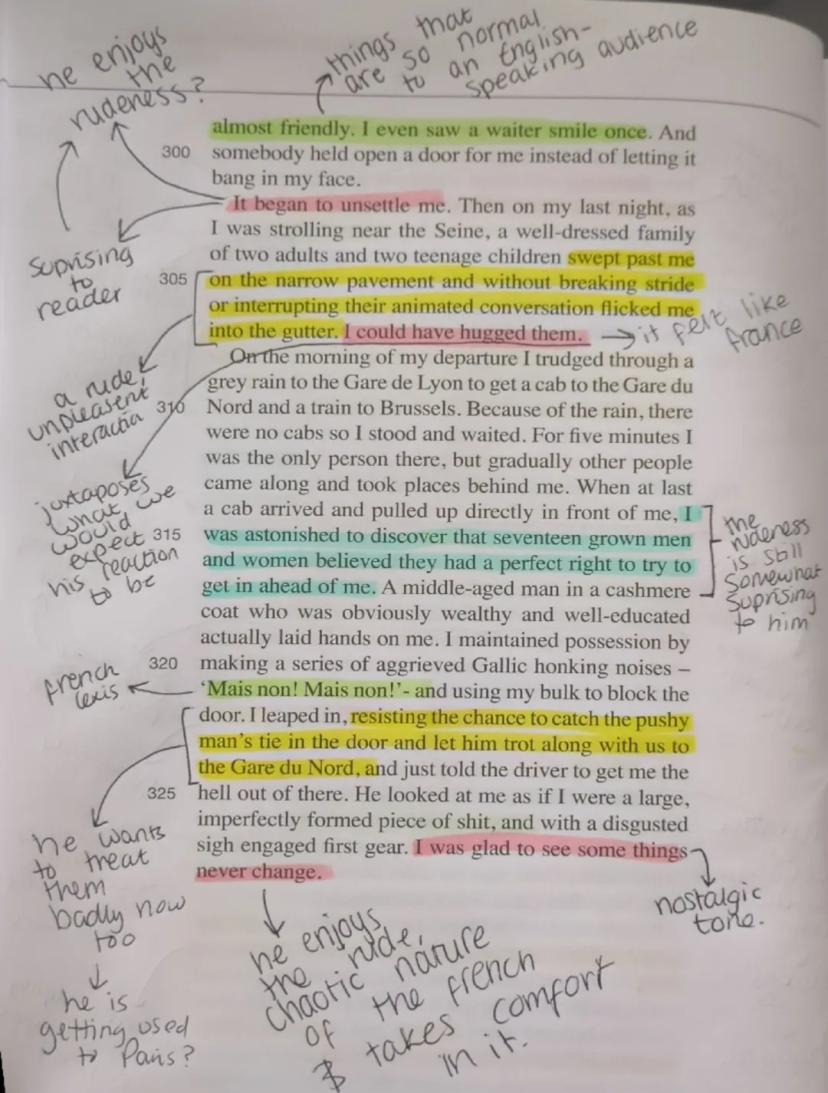 he enjoys
the
rudeness?
things that
are so normal
to an English-
speaking audience
almost friendly. I even saw a waiter smile once. And
300 somebody held open a door for me instead of letting it
bang in my face.
It began to unsettle me. Then on my last night, as
I was strolling near the Seine, a well-dressed family
of two adults and two teenage children swept past me
305 on the narrow pavement and without breaking stride
or interrupting their animated conversation flicked me
into the gutter. I could have hugged them.
On the morning of my departure I trudged through a
grey rain to the Gare de Lyon to get a cab to the Gare du
310 Nord and a train to Brussels. Because of the rain, there
were no cabs so I stood and waited. For five minutes I
was the only person there, but gradually other people
came along and took places behind me. When at last
a cab arrived and pulled up directly in front of me, I
315 was astonished to discover that seventeen grown men
and women believed they had a perfect right to try to
get in ahead of me. A middle-aged man in a cashmere
coat who was obviously wealthy and well-educated
actually laid hands on me. I maintained possession by
320 making a series of aggrieved Gallic honking noises –
‘Mais non! Mais non!’- and using my bulk to block the
door. I leaped in, resisting the chance to catch the pushy
man’s tie in the door and let him trot along with us to
the Gare du Nord, and just told the driver to get me the
325 hell out of there. He looked at me as if I were a large,
imperfectly formed piece of shit, and with a disgusted
sigh engaged first gear. I was glad to see some things
never change.
Suprising
to
reader
it felt like
france
a rude,
unpleasent
interactio
juxtaposes
what we
would
expect
his reaction
to be
the
rudeness
is still
somewhat
suprising
to him
french
lexis
he wants
to treat
them
badly now
too
he is
getting used
to Paris?
he enjoys
the rude,
chaotic nature
of the french
& takes comfort
in it.
nostalgic
tone.